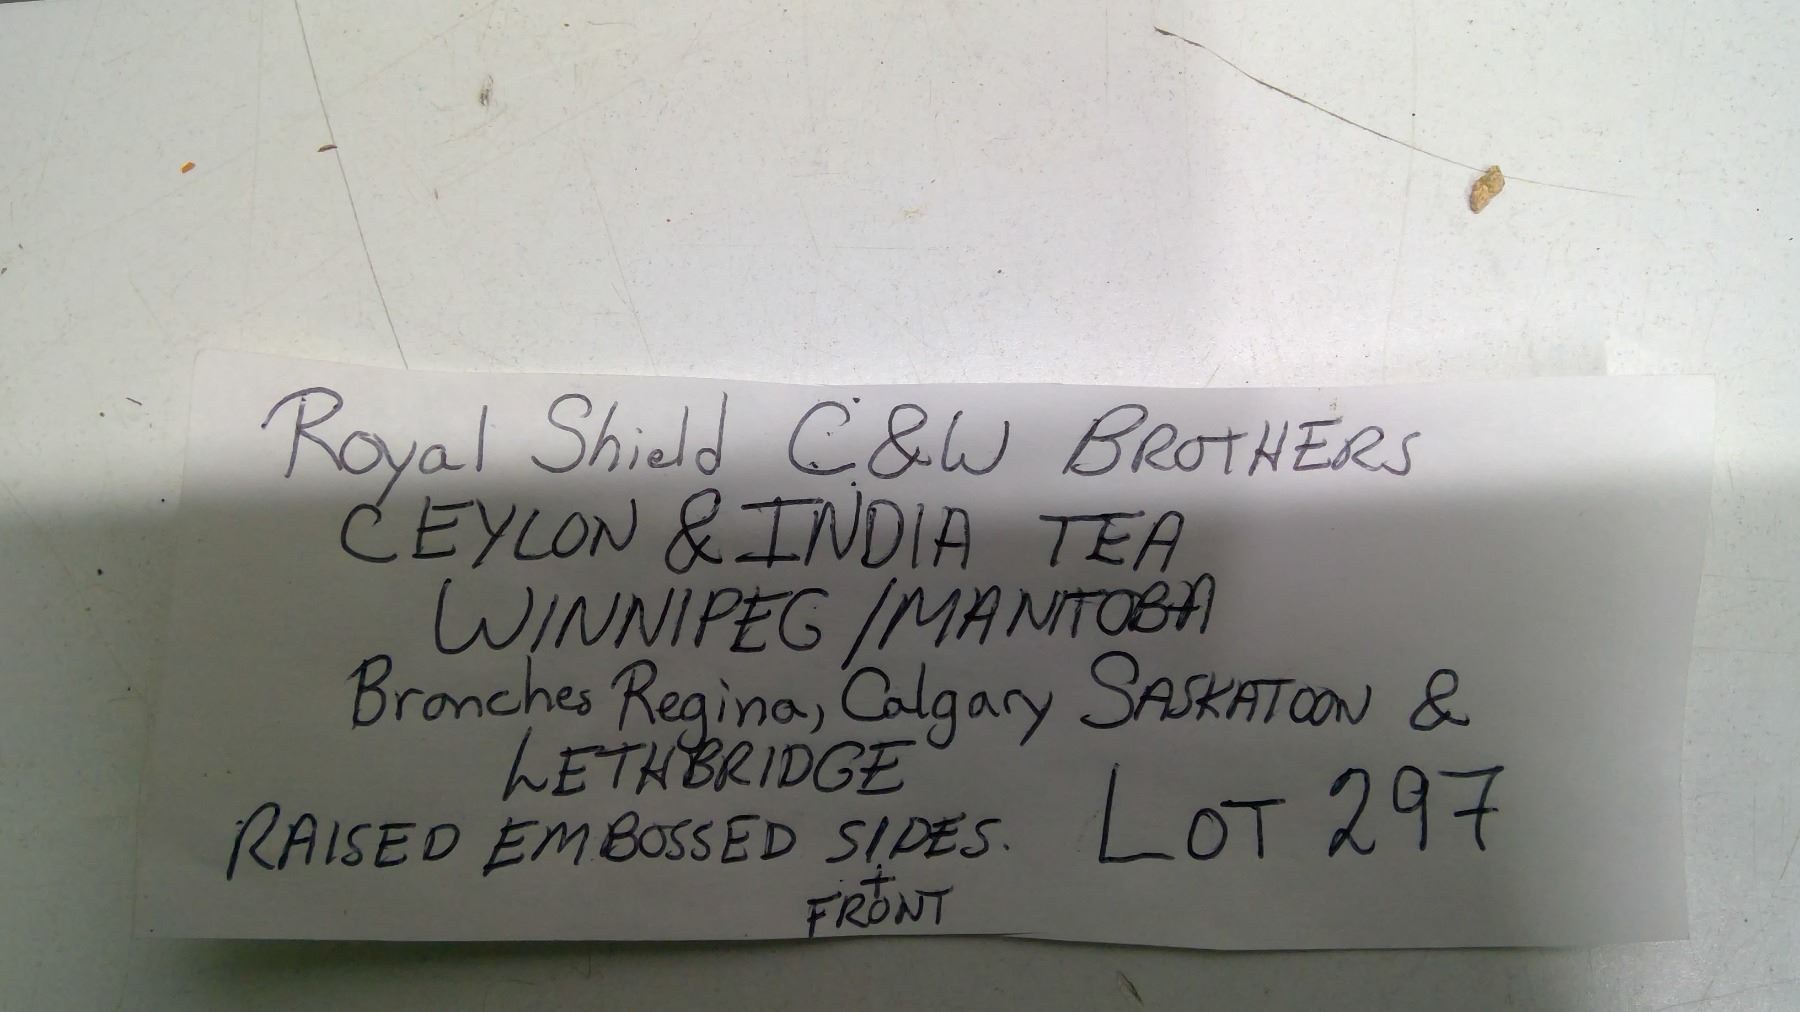 Royal Shield C&W BROTHERS
CEYLON & INDIA TEA
WINNIPEG /MANITOBA
Branches Regina, Calgary SASKATOON &
LETHBRIDGE
RAISED EMBOSSED SIDES. LOT 297
+
FRONT